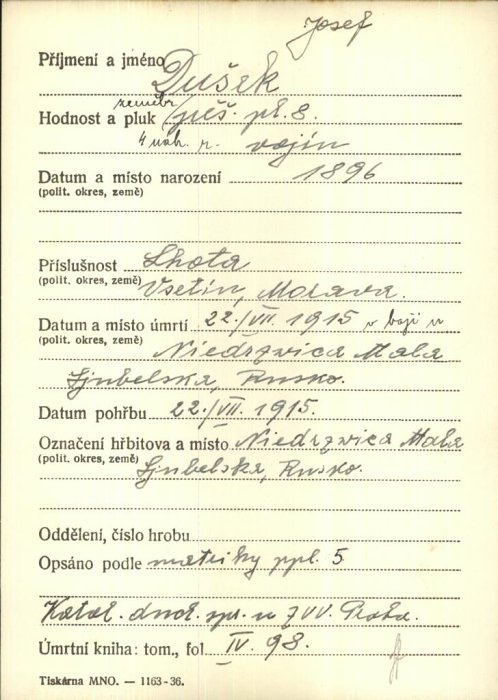 Josef
Příjmení a jméno Dušek
zeměbr.
Hodnost a pluk pěš. pl. 8.
4 náh. r. vojín
Datum a místo narození 1896
(polit. okres, země)
Příslušnost Lhota
(polit. okres, země) Vsetín, Morava.
Datum a místo úmrtí 22./VII. 1915 v boji u
(polit. okres, země) Niedrzwica Mala
Ljubelska, Rusko.
Datum pohřbu 22./VII. 1915.
Označení hřbitova a místo Niedrzwica Mala
(polit. okres, země) Ljubelska, Rusko.
Oddělení, číslo hrobu
Opsáno podle matriky ppl. 5
Katol. duch. spr. u ZVV. Praha.
Úmrtní kniha: tom., fol. IV. 98.
Tiskárna MNO. — 1163-36.